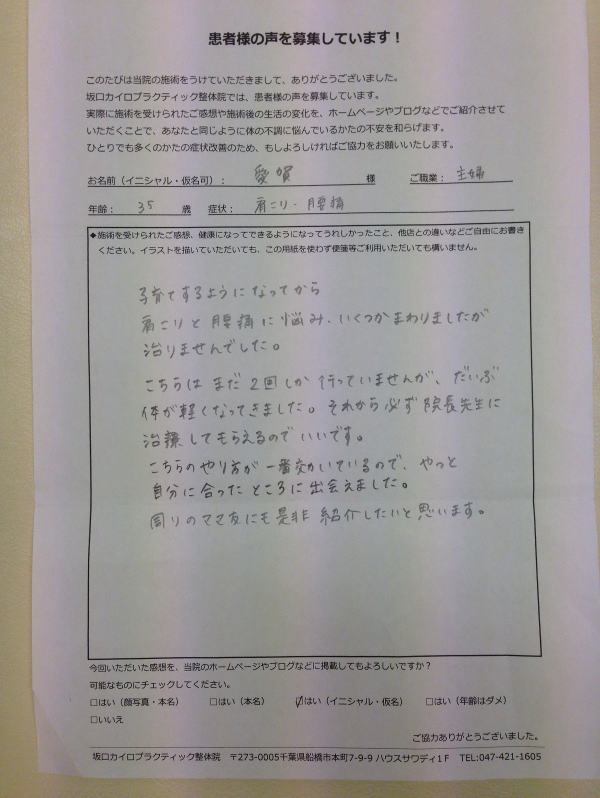 患者様の声を募集しています！
このたびは当院の施術をうけていただきまして、ありがとうございました。
坂口カイロプラクティック整体院では、患者様の声を募集しています。
実際に施術を受けられたご感想や施術後の生活の変化を、ホームページやブログなどでご紹介させて
いただくことで、あなたと同じように体の不調に悩んでいるかたの不安を和らげます。
ひとりでも多くのかたの症状改善のため、もしよろしければご協力をお願いいたします。
お名前（イニシャル・仮名可）： 愛賀 様 ご職業： 主婦
年齢： 35 歳 症状： 肩こり・腰痛
◆施術を受けられたご感想、健康になってできるようになってうれしかったこと、他店との違いなどご自由にお書き
ください。イラストを描いていただいても、この用紙を使わず便箋等ご利用いただいても構いません。
子育てするようになってから
肩こりと腰痛に悩み、いくつかまわりましたが
治りませんでした。
こちらはまだ2回しか行っていませんが、だいぶ
体が軽くなってきました。それから必ず院長先生に
治療してもらえるのでいいです。
こちらのやり方が一番効いているので、やっと
自分に合ったところに出会えました。
周りのママ友にも是非紹介したいと思います。
今回いただいた感想を、当院のホームページやブログなどに掲載してもよろしいですか？
可能なものにチェックしてください。
□はい（顔写真・本名） □はい（本名） ☑はい（イニシャル・仮名） □はい（年齢はダメ）
□いいえ
ご協力ありがとうございました。
坂口カイロプラクティック整体院 〒273-0005千葉県船橋市本町7-9-9 ハウスサワディ１F TEL:047-421-1605